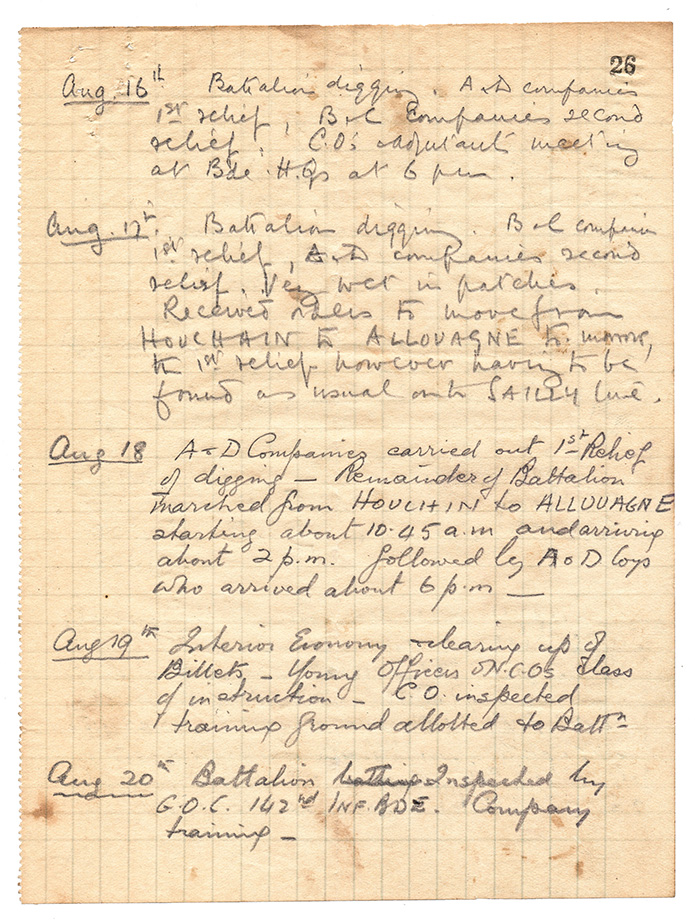 26
Aug. 16th Battalion digging. A & D companies
1st relief, B & C Companies second
relief. C.O's adjutants meeting
at Bde. H.Qs at 6 pm.
Aug. 17th. Battalion digging. B & C companies
1st relief, A & D companies second
relief. Very wet in patches.
Received orders to move from
HOUCHAIN to ALLOUAGNE to-morrow,
the 1st relief however having to be
found as usual on the SAILLY line.
Aug 18 A & D Companies carried out 1st Relief
of digging – Remainder of Battalion
marched from HOUCHIN to ALLOUAGNE
starting about 10.45 a.m and arriving
about 2 p.m. followed by A & D Coys
who arrived about 6 p.m –
Aug 19th Interior Economy & clearing up of
Billets – Young Officers & N.C.Os class
of instruction – C.O. inspected
training ground allotted to Battn
Aug 20th Battalion Inspected by
G.O.C. 142nd INF. BDE. Company
training –